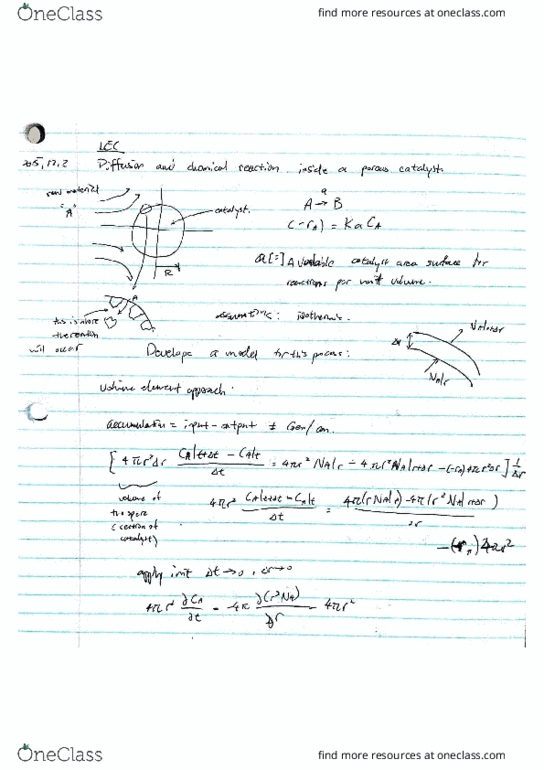 OneClass
find more resources at oneclass.com
LEC
Diffusion and chemical reaction inside a porous catalyst
raw material
"A"
catalyst.
R
A
this is where
the reaction
will occur
a
A → B
(-rA) = Ka CA
a[=] Available catalyst area surface for
reactions per unit volume.
: isothermic.
Develope a model for this process:
Δr
NA|r+Δr
NA|r
Volume element approach.
accumulation = input - output ± Gen/con.
[4πr²Δr CA|t+Δt - CA|t / Δt = 4πr² NA|r - 4πr² NA|r+Δr - (-rA)4πr²Δr] 1/Δr
volume of
the space
(section of
catalyst)
4πr² CA|t+Δt - CA|t / Δt = 4π(r²NA|r) - 4π(r² NA|r+Δr) / Δr
-(-rA) 4πr²
apply Δt → 0, Δr → 0
4πr² ∂CA/∂t = -4π ∂(r²NA)/∂r 4πr²
OneClass
find more resources at oneclass.com